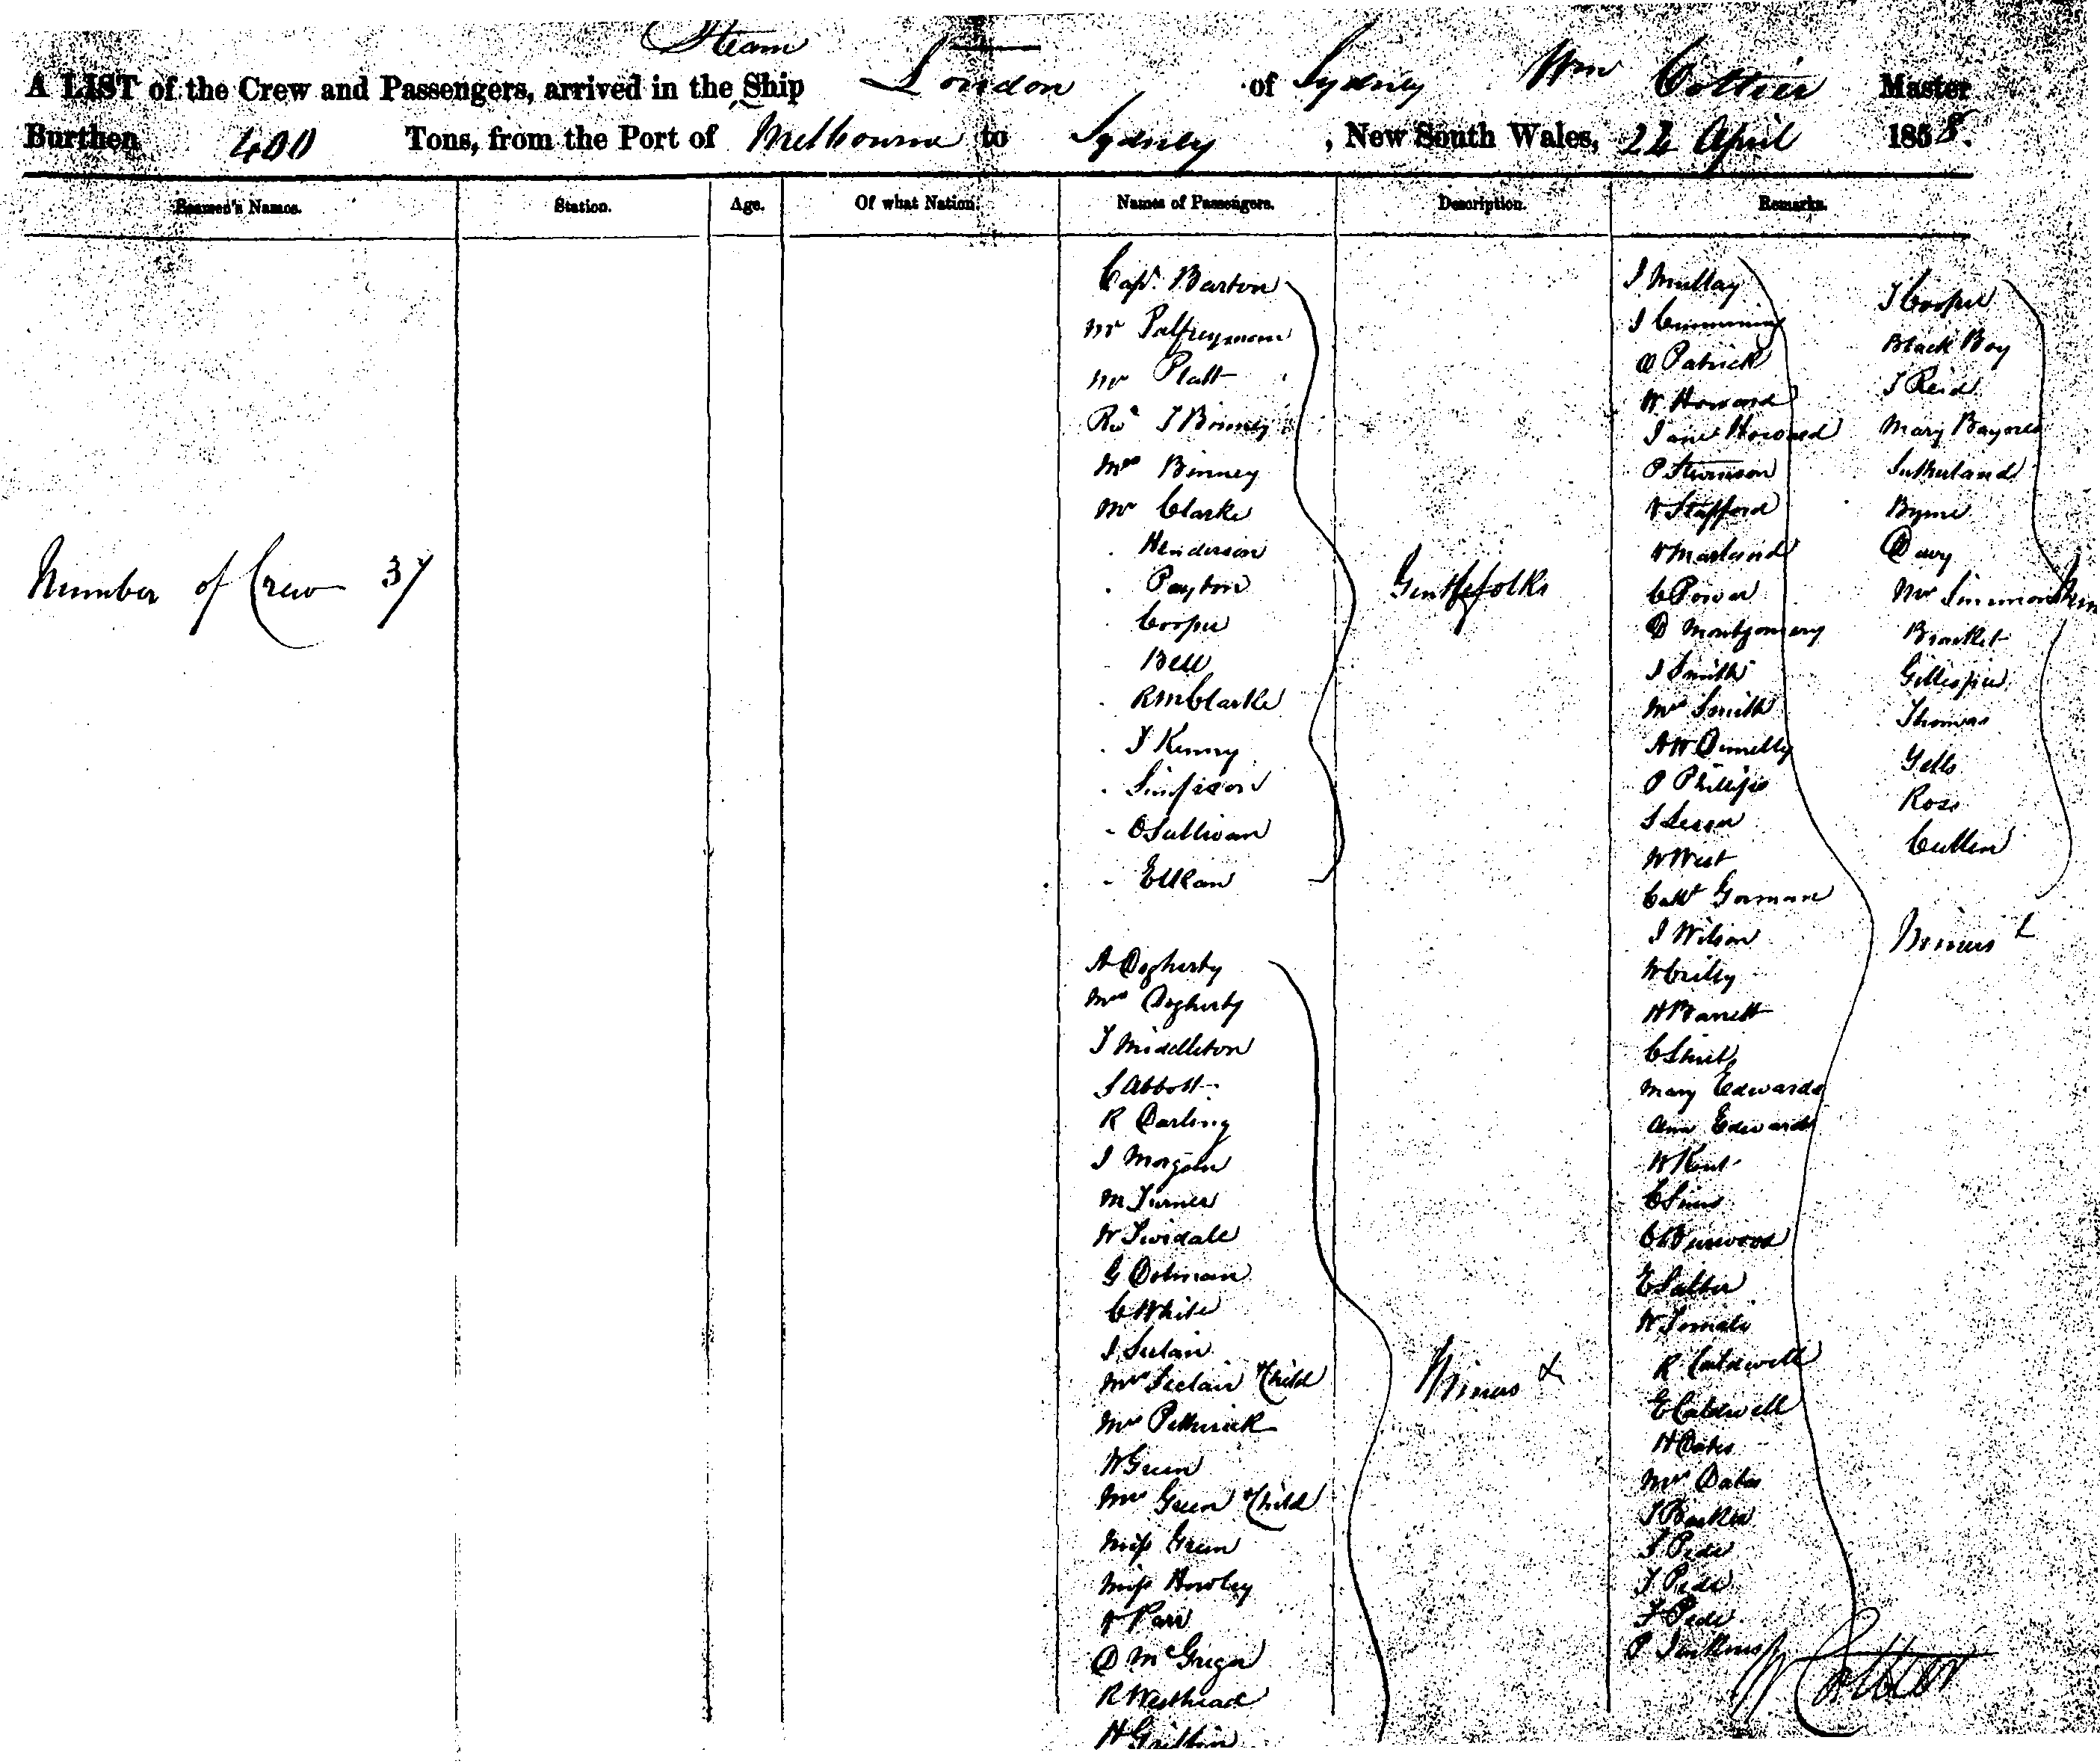 Steam
A LIST of the Crew and Passengers, arrived in the Ship London of Sydney Wm Cottier Master
Burthen 400 Tons, from the Port of Melbourne to Sydney, New South Wales, 22 April 1858.
Seamen's Names. Station. Age. Of what Nation. Names of Passengers. Description. Remarks.
Number of Crew 37
Capt. Barton
Mr Palfreyman
Mr Platt
Revd T Binney
Mrs Binney
Mr Clarke
Henderson
Payton
Cooper
Bell
R M Clarke
J Kenny
Simpson
O Sullivan
Elkan
Gentlefolks
A Dogherty
Mrs Dogherty
J Middleton
J Abbott
R Darling
J Morgan
M Turner
W Twidale
G Dolman
C White
J
Mrs & Child
Mrs Petherick
W Green
Mrs Green & Child
Miss Green
Miss Howley
Parr
D McGregor
R Westhead
H Griffin
Miners &
J Mullay
J Cumming
O Patrick
W Howard
Jane Howard
P
Stafford
C Power
D Montgomery
J Smith
Mrs Smith
A W Donnelly
P Phillips
W West
Cath Gorman
J Wilson
W Crilly
H Barrett
C
Mary Edwards
Ann Edwards
W Kent
C Sims
C
E Salter
W
R Caldwell
E Caldwell
H Oates
Mrs Oates
J Barker
S Pede
J Pede
F Pede
P Jenkins
J Cooper
Black Boy
J Reid
Mary Baynes
Sutherland
Byrne
Davy
Mr Simmons
Gillespie
Thomas
Gells
Ross
Cullen
Miners &
W Cottier